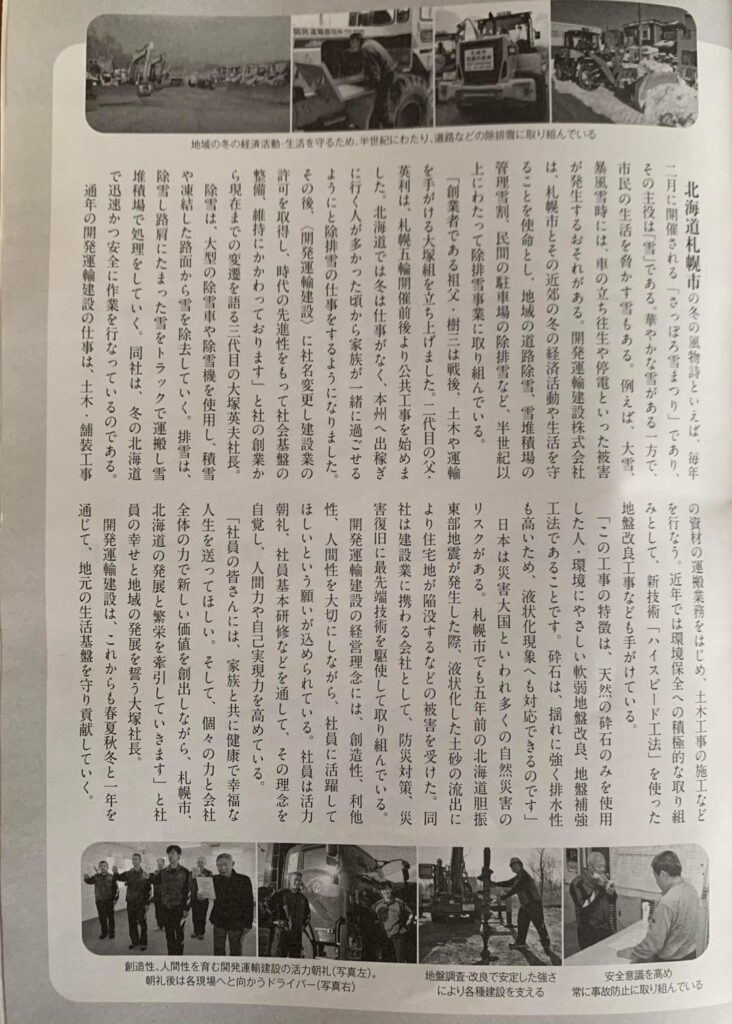 地域の冬の経済活動・生活を守るため、半世紀にわたり、道路などの除排雪に取り組んでいる
北海道札幌市の冬の風物詩といえば、毎年
二月に開催される「さっぽろ雪まつり」であり、
その主役は「雪」である。華やかな雪がある一方で、
市民の生活を脅かす雪もある。例えば、大雪、
暴風雪時には、車の立ち往生や停電といった被害
が発生するおそれがある。開発運輸建設株式会社
は、札幌市とその近郊の冬の経済活動や生活を守
ることを使命とし、地域の道路除雪、雪堆積場の
管理雪割、民間の駐車場の除排雪など、半世紀以
上にわたって除排雪事業に取り組んでいる。
「創業者である祖父・樹三は戦後、土木や運輸
を手がける大塚組を立ち上げました。二代目の父・
英利は、札幌五輪開催前後より公共工事を始めま
した。北海道では冬は仕事がなく、本州へ出稼ぎ
に行く人が多かった頃から家族が一緒に過ごせる
ようにと除排雪の仕事をするようになりました。
その後、〈開発運輸建設〉に社名変更し建設業の
許可を取得し、時代の先進性をもって社会基盤の
整備、維持にかかわっております」と社の創業か
ら現在までの変遷を語る三代目の大塚英夫社長。
除雪は、大型の除雪車や除雪機を使用し、積雪
や凍結した路面から雪を除去していく。排雪は、
除雪し路肩にたまった雪をトラックで運搬し雪
堆積場で処理をしていく。同社は、冬の北海道
で迅速かつ安全に作業を行なっているのである。
通年の開発運輸建設の仕事は、土木・舗装工事
の資材の運搬業務をはじめ、土木工事の施工など
を行なう。近年では環境保全への積極的な取り組
みとして、新技術「ハイスピード工法」を使った
地盤改良工事なども手がけている。
「この工事の特徴は、天然の砕石のみを使用
した人・環境にやさしい軟弱地盤改良、地盤補強
工法であることです。砕石は、揺れに強く排水性
も高いため、液状化現象へも対応できるのです」
日本は災害大国といわれ多くの自然災害の
リスクがある。札幌市でも五年前の北海道胆振
東部地震が発生した際、液状化した土砂の流出に
より住宅地が陥没するなどの被害を受けた。同
社は建設業に携わる会社として、防災対策、災
害復旧に最先端技術を駆使して取り組んでいる。
開発運輸建設の経営理念には、創造性、利他
性、人間性を大切にしながら、社員に活躍して
ほしいという願いが込められている。社員は活力
朝礼、社員基本研修などを通して、その理念を
自覚し、人間力や自己実現力を高めている。
「社員の皆さんには、家族と共に健康で幸福な
人生を送ってほしい。そして、個々の力と会社
全体の力で新しい価値を創出しながら、札幌市、
北海道の発展と繁栄を牽引していきます」と社
員の幸せと地域の発展を誓う大塚社長。
開発運輸建設は、これからも春夏秋冬と一年を
通じて、地元の生活基盤を守り貢献していく。
創造性、人間性を育む開発運輸建設の活力朝礼(写真左)。
朝礼後は各現場へと向かうドライバー(写真右)
地盤調査・改良で安定した強さ
により各種建設を支える
安全意識を高め
常に事故防止に取り組んでいる